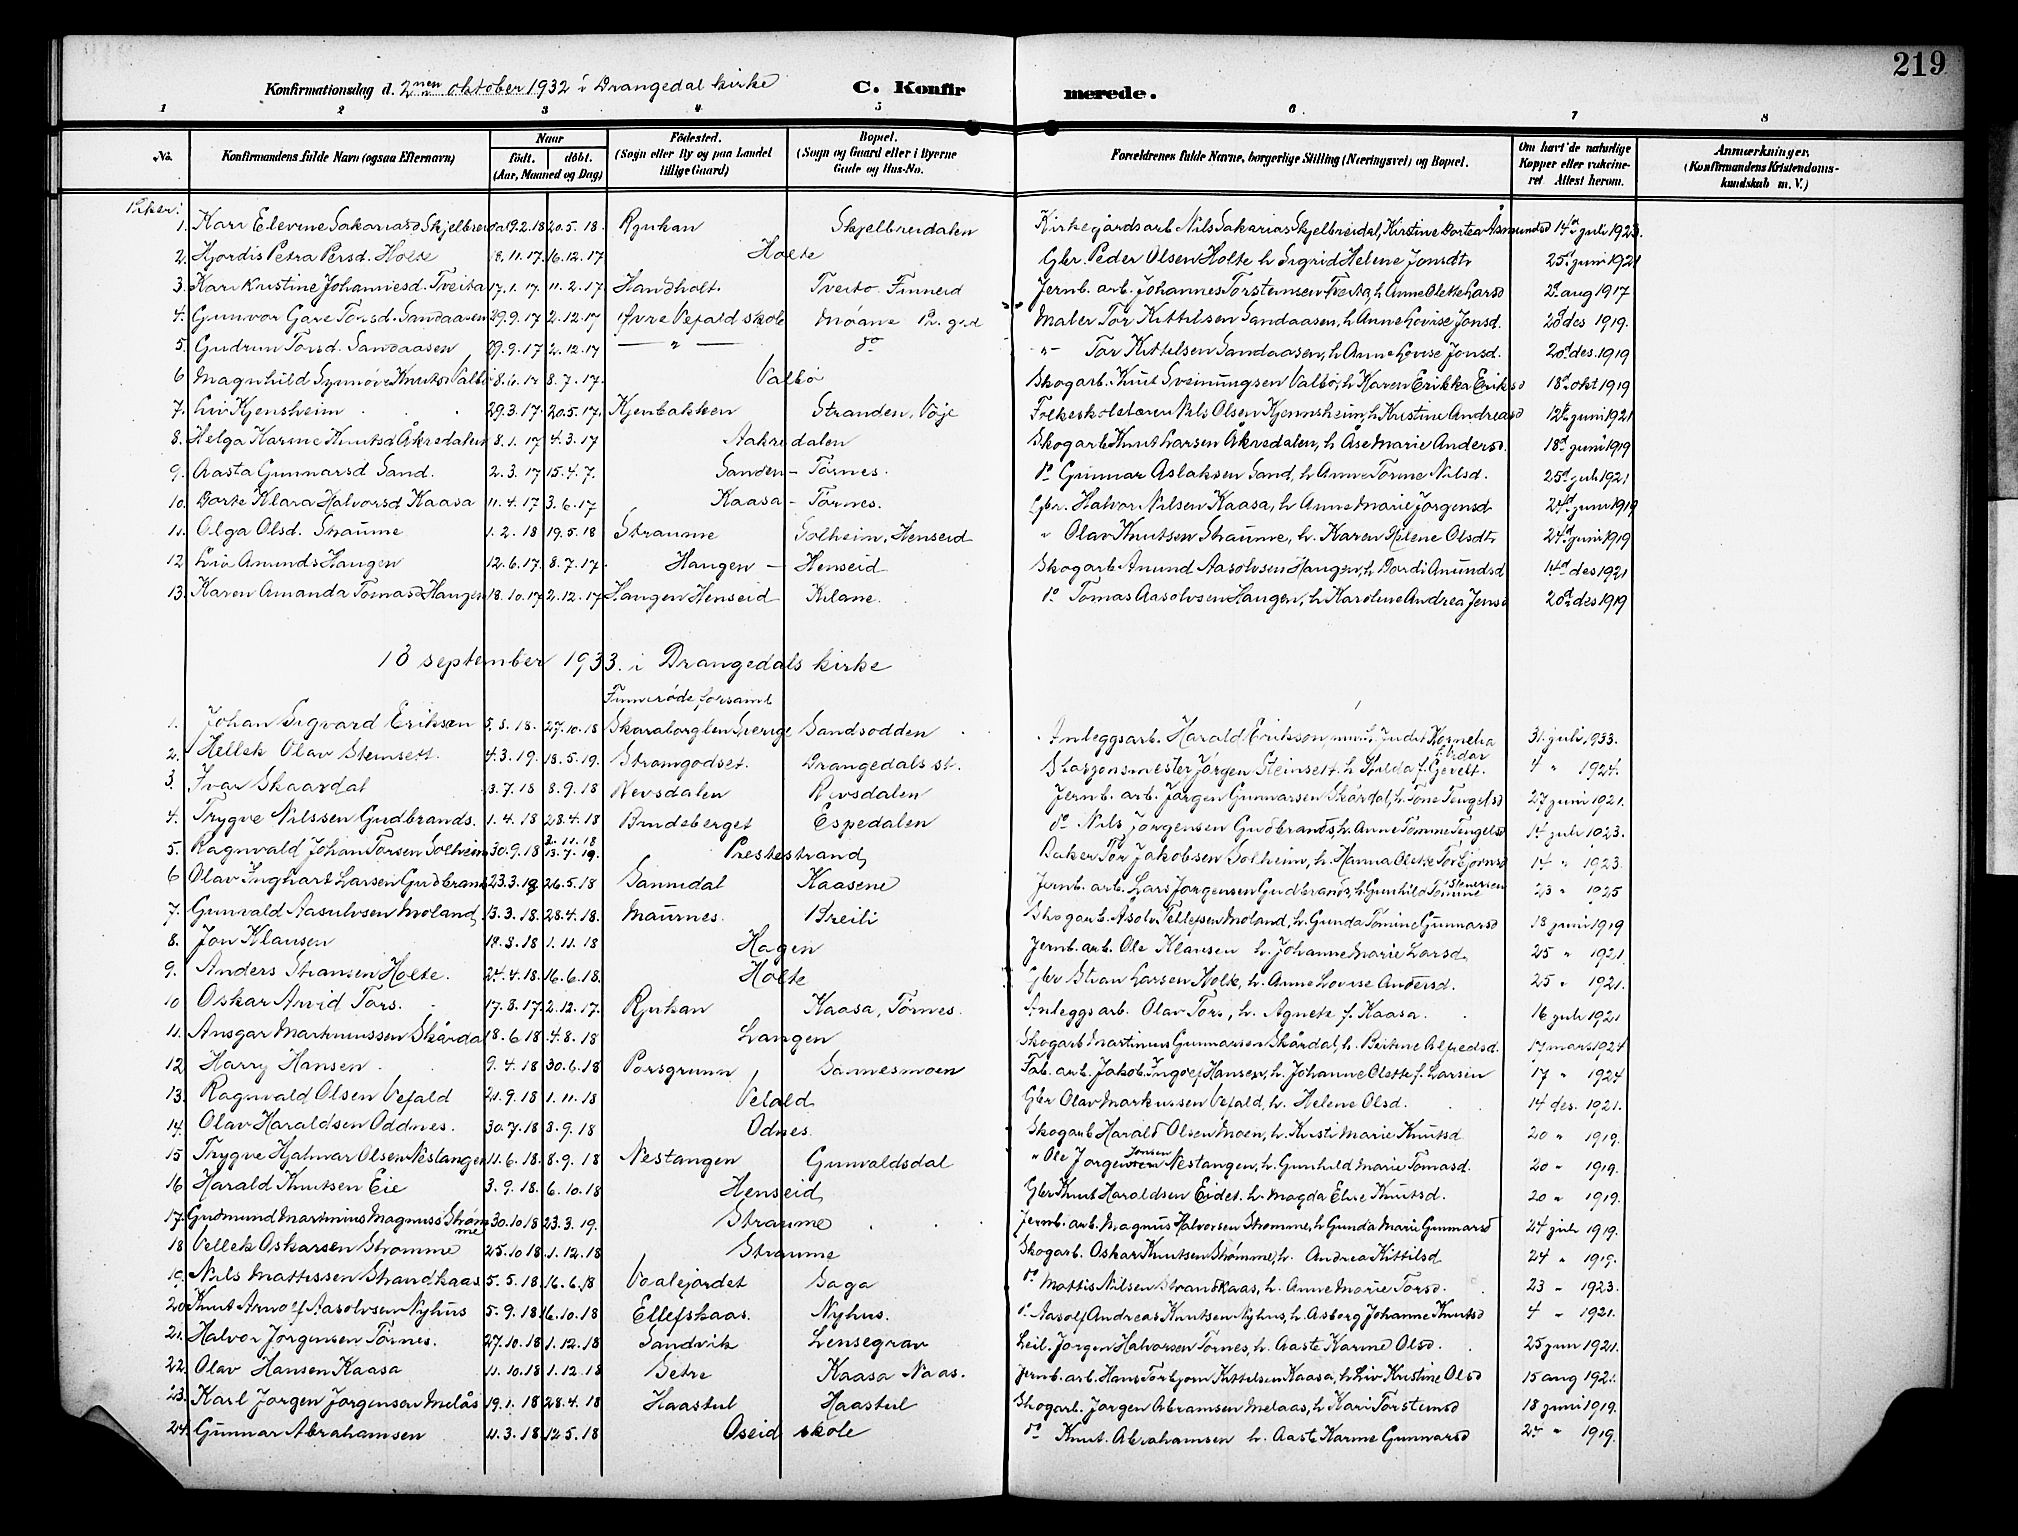 219
Konfirmationsdag d. 2nen oktober 1932 i Drangedal kirke C. Konfirmerede.
1 2 3 4 5 6 7 8
No. Konfirmandens fulde Navn (ogsaa Efternavn) Naar født. døbt. (Aar, Maaned og Dag) Fødested. (Sogn eller By og paa Landet tillige Gaard) Bopæl. (Sogn og Gaard eller i Byerne Gade og Hus-No. Forældrenes fulde Navne, borgerlige Stilling (Næringsvei) og Bopæl. Om havt de naturlige Kopper eller vaccineret Attest herom. Anmærkninger. (Konfirmandens Kristendomskundskab m. V.)
Piker:
1. Kari Elevine Sakariasd Skjelbreidal 19.2.18 20.5.18. Rjukan Skjelbreidalen Kirkegårdsarb Nils Sakarias Skjelbreidal, Kirstine Dortea Åsmundsd 14d juli 1923.
2. Hjordis Petra Persd. Holte 18.11.17 16.12.17 Holte Gbr. Peder Olsen Holte h Sigrid Helene Jonsdtr 25d juni 1921
3. Kari Kristine Johannesd. Tveita 17.1.17 11.2.17 Handholt Tveito Finneid Jernb. arb. Johannes Torsteinsen Tveita, h Anne Olette Larsd 2d aug 1917
4. Gunvor Gare Torsd. Sandaasen 29.9.17 2.12.17 Øvre Vefald skole Moane Pr. gd Maler Tor Kittilsen Sandaasen, h Anne Lovise Jonsd. 20d des 1919.
5. Gudrun Torsd. Sandaasen 29.9.17 2.12.17 — " — do - " - Tor Kittelsen Sandaasen, h Anne Lovise Jonsd. 20d des. 1919
6 Magnhild Synnøve Knutsd Valbø 8.6.17 8.7.17. Valbø Skogarb. Knut Sveinungsen Valbø, h Karen Erikka Eriksd 18d okt 1919
7. Liv Kjensheim 29.3.17. 20.5.17. Kjenbakken Stranden, Vøje Folkeskolelærer Nils Olsen Kjennsheim, h Kristine Andreasd 12te juni 1921
8. Helga Karine Knutsd Åkredalen 8.1.17 4.3.17 Aakredalen Skogarb Knut Larsen Åkredalen, h Åse Marie Andersd. 18d juni 1919
9. Aasta Gunnarsd Sand. 2.3.17 15.4.7. Sanden - Tørnes. do Gunnar Aslaksen Sand, h Anne Tomine Nilsd. 25d juli 1921
10. Dorte Klara Halvorsd Kaasa 11.4.17 3.6.17 Kaasa - Tørnes. Gbr. Halvor Nilsen Kaasa, h Anne Marie Jørgensd 24d juni 1919
11. Olga Olsd. Straume 1.2.18 19.5.18 Straume Solheim, Henseid " Olav Knutsen Straume, h. Karen Helene Olsdtr 24d juni 1919
12 Liv Anunds Haugen 12.6.17. 8.7.17. Haugen - Henseid Skogarb Anund Aasolvsen Haugen, h Bordi Anundsd 14d des 1921
13. Karen Amanda Tomasd Haugen 18.10.17 2.12.17 Haugen Henseid Kilane. do Tomas Aasolvsen Haugen, h Karoline Andrea Jensd 20d des 1919
18 september 1933. i Drangedals kirke
Finnerøde forsaml
1. Johan Sigvard Eriksen 5.3.18. 27.10.18 Skaraborglen Sverige Sandsodden Anleggsarb. Harald Eriksson, Judit Kornelia 31. juli 1933.
2. Hellek Olav Steinsett. 4.3.19. 18.5.19. Strømgodset. Drangedals st. Stasjonsmester Jørgen Steinsett. h Hulda f. Gevelt. 4 " 1924.
3. Ivar Skaardal 13.7.18 8.9.18 Revsdalen Revsdalen Jernb. arb. Jørgen Gunnarsen Skårdal, h. Tone Tengelsd 27 juni 1921.
4. Trygve Nilssen Gudbrands. 1.4.18 28.4.18 Bindeberget Espedalen do Nils Jørgensen Gudbrands, h. Anne Tomine Tengelsd 14 juli 1923.
5. Ragnvald Johan Torsen Solheim 30.9.18 3.11.18 13.7.19. Prestestrand Baker Tor Jakobsen Solheim, h. Hanna Olette Torbjørnsd 14 " 1923.
6 Olav Inghart Larsen Gudbrands 23.3.18 26.5.18 Sannidal Kaasene Jernb. arb. Lars Jørgensen Gudbrands, h. Gunhild Tomine Stenersen 23 " 1925
7. Gunvald Aasulvsen Moland 13.3.18 28.4.18. Maurnes. Breili Skogarb. Asolv Tellefsen Moland, h. Gunda Tomine Gunnarsd 18 juni 1919
8. Jon Klausen 18.3.18 1.11.18 Hagen Jernb. arb. Ole Klausen h. Johanne Marie Larsd. 25 " 1921
9. Anders Stiansen Holte. 24.4.18. 16.6.18. Holte Gbr Stian Larsen Holte, h. Anne Lovise Andersd. 25 " 1921.
10 Oskar Arvid Tors. 17.8.17. 2.12.17. Rjukan Kaasa, Tørnes. Anleggsarb. Olav Tors, h. Agnete f. Kaasa. 16 juli 1921
11. Ansgar Martinussen Skårdal 18.6.18 4.8.18 Langen Skogarb Martinus Gunnarsen Skårdal, h. Alfredsd. 17 mars 1924
12 Harry Hansen 9.4.18 30.6.18 Porsgrunn Sannesmoen Fab. arb. Jakob Ingolf Hansen, h. Johanne Olette f. Larsen 17 " 1924
13. Ragnvald Olsen Vefald 21.9.18 1.11.18 Vefald Gbr Olav Markussen Vefald, h. Helene Olsd. 14 des. 1921.
14. Olav Haraldsen Oddnes. 30.7.18 8.9.18 Odnes. Skogarb Harald Olsen Moen, h. Kirsti Marie Knutsd 20 " 1919.
15 Trygve Hjalmar Olsen Nestangen 11.6.18 8.9.18 Nestangen Gunvaldsdal " Ole Jørgen Jonsen Nestangen, h. Gunhild Marie Tomasd. 20 " 1919.
16 Harald Knutsen Eie 3.9.18. 6.10.18 Henseid Gbr Knut Haraldsen Eidet. h. Magda Elise Knutsd. 20 " 1919.
17. Gudmund Martinius Magnuss Strømme 30.10.18 23.3.19. Straume Jernb. arb. Magnus Halvorsen Strømme, h Gunda Marie Gunnarsd 24 juli 1919.
18 Vellek Oskarsen Strømme 25.10.18 1.12.18 Straume Skogarb. Oskar Knutsen Strømme, h. Andrea Kittilsd 24 " 1919.
19. Nils Mattissen Strandkaas 5.5.18 16.6.18 Vaalejordet Saga do Mattis Nilsen Strandkaas, h. Anne Marie Torsd. 23 " 1923.
20 Knut Arnolf Aasolvsen Nyhus 5.9.18 6.10.18 Ellefskaas. Nyhus. do Aasolf Andreas Knutsen Nyhus, h. Asborg Johanne Knutsd 4 " 1921.
21. Halvor Jørgensen Tørnes. 27.10.18 1.12.18 Sandvik Lensegrav Leil. Jørgen Halvorsen Tørnes, h. Aaste Karine Olsd. 25 juni 1921.
22. Olav Hansen Kaasa 11.10.18 1.12.18 Setre Kaasa Naas. Jernb. arb. Hans Torbjørn Kittilsen Kaasa, h Liv Kristine Olsd 15 aug 1921.
23. Karl Jørgen Jørgensen Melås 19.1.18 28.4.18 Haastul Haastul Skogarb. Jørgen Abramsen Melaas, h Kari Torsteinsd 18 juni 1919.
24. Gunnar Abrahamsen 11.3.18 12.5.18 Oseid skole do Knut Abrahamsen h. Aaste Karine Gunnarsd 24 " 1919.